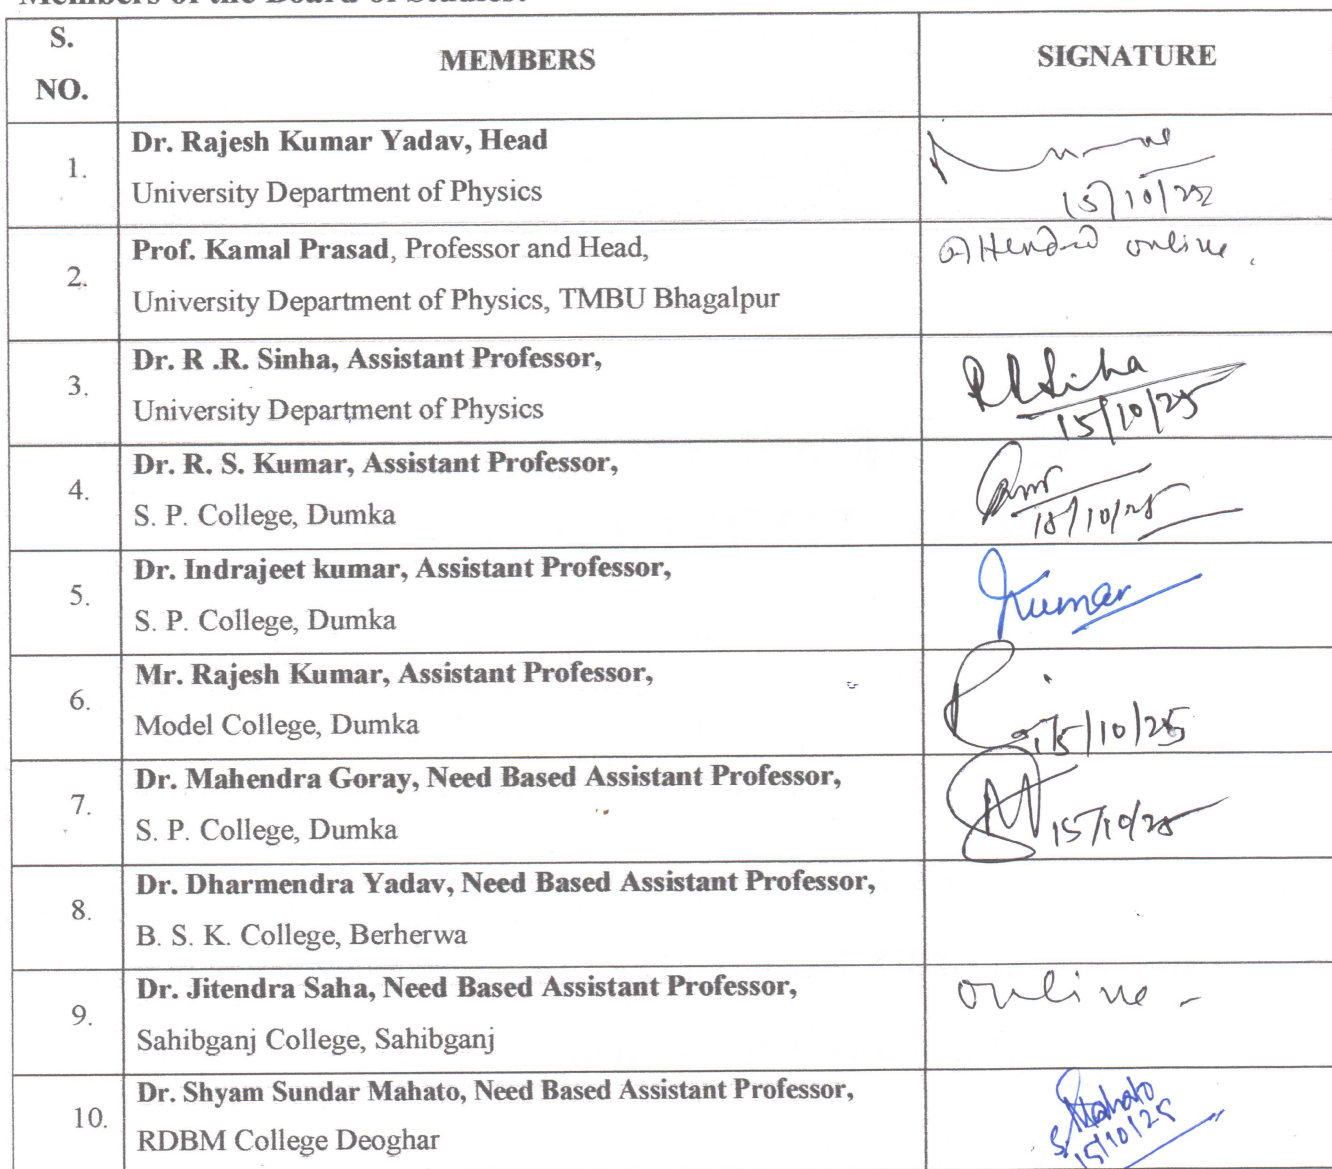 Members of the Board of Studies:
S. NO. MEMBERS SIGNATURE
1. Dr. Rajesh Kumar Yadav, Head
University Department of Physics
15/10/25
2. Prof. Kamal Prasad, Professor and Head,
attended online.
University Department of Physics, TMBU Bhagalpur
3. Dr. R .R. Sinha, Assistant Professor,
University Department of Physics
RRSinha
15/10/25
4. Dr. R. S. Kumar, Assistant Professor,
S. P. College, Dumka
15/10/25
5. Dr. Indrajeet kumar, Assistant Professor,
S. P. College, Dumka
Kumar
6. Mr. Rajesh Kumar, Assistant Professor,
Model College, Dumka
15/10/25
7. Dr. Mahendra Goray, Need Based Assistant Professor,
S. P. College, Dumka
15/10/25
8. Dr. Dharmendra Yadav, Need Based Assistant Professor,
B. S. K. College, Berherwa
9. Dr. Jitendra Saha, Need Based Assistant Professor,
online -
Sahibganj College, Sahibganj
10. Dr. Shyam Sundar Mahato, Need Based Assistant Professor,
RDBM College Deoghar
S. Mahato
15/10/25